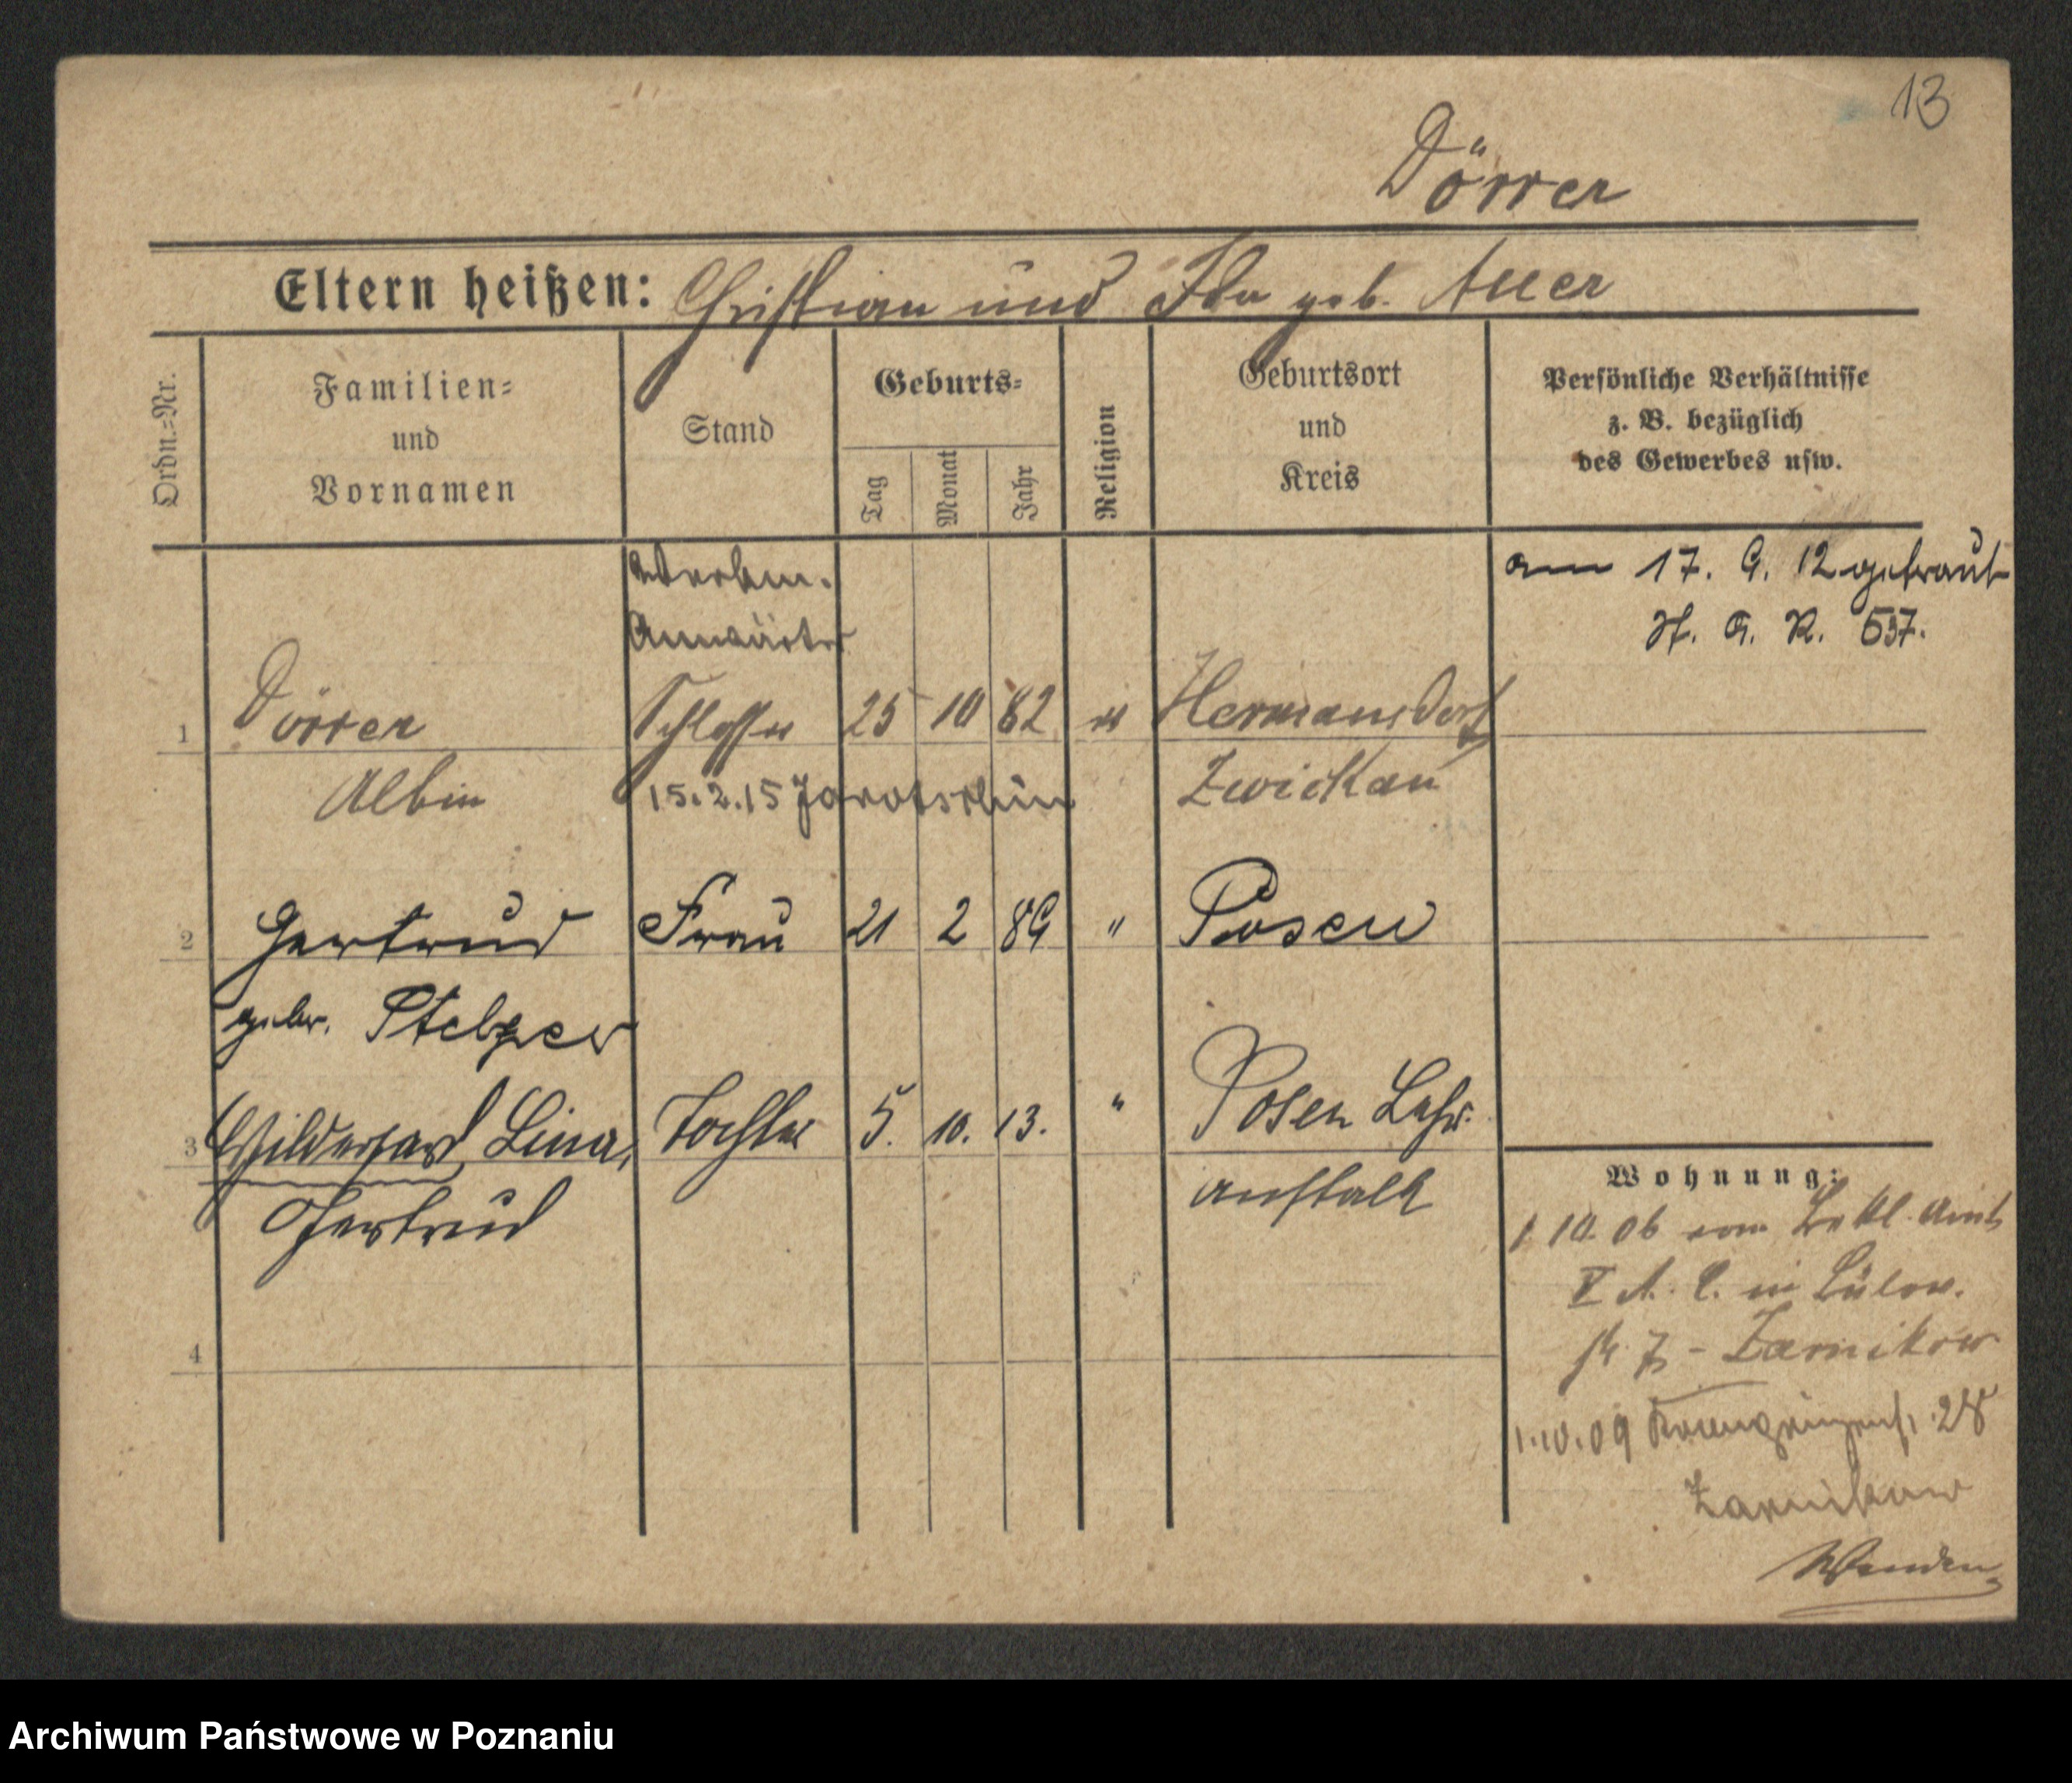 13
Dörrer
Eltern heißen: Christian und Ida geb. Auer
Ordn.=Nr.
Familien=
und
Vornamen
Stand
Geburts=
Tag
Monat
Jahr
Religion
Geburtsort
und
Kreis
Persönliche Verhältnisse
z. B. bezüglich
des Gewerbes usw.
am 17. 9. 12 getraut
H. A. R. 537.
Anwärter
1 Dörrer Schlosser 25 10 82 Hermansdorf
Albin 15.2.15 Jarotschin Zwickau
2 Gertrud Frau 21 2 89 " Posen
gebr. Stelzer
3 Hildegard, Lina, Tochter 5. 10. 13. " Posen Lehr.
Gertrud anstalt
4
Wohnung:
1 10. 06 vom
V A. B. in
Zarnikow
1.10.09 28
Zarnikow
Wenden
Archiwum Państwowe w Poznaniu